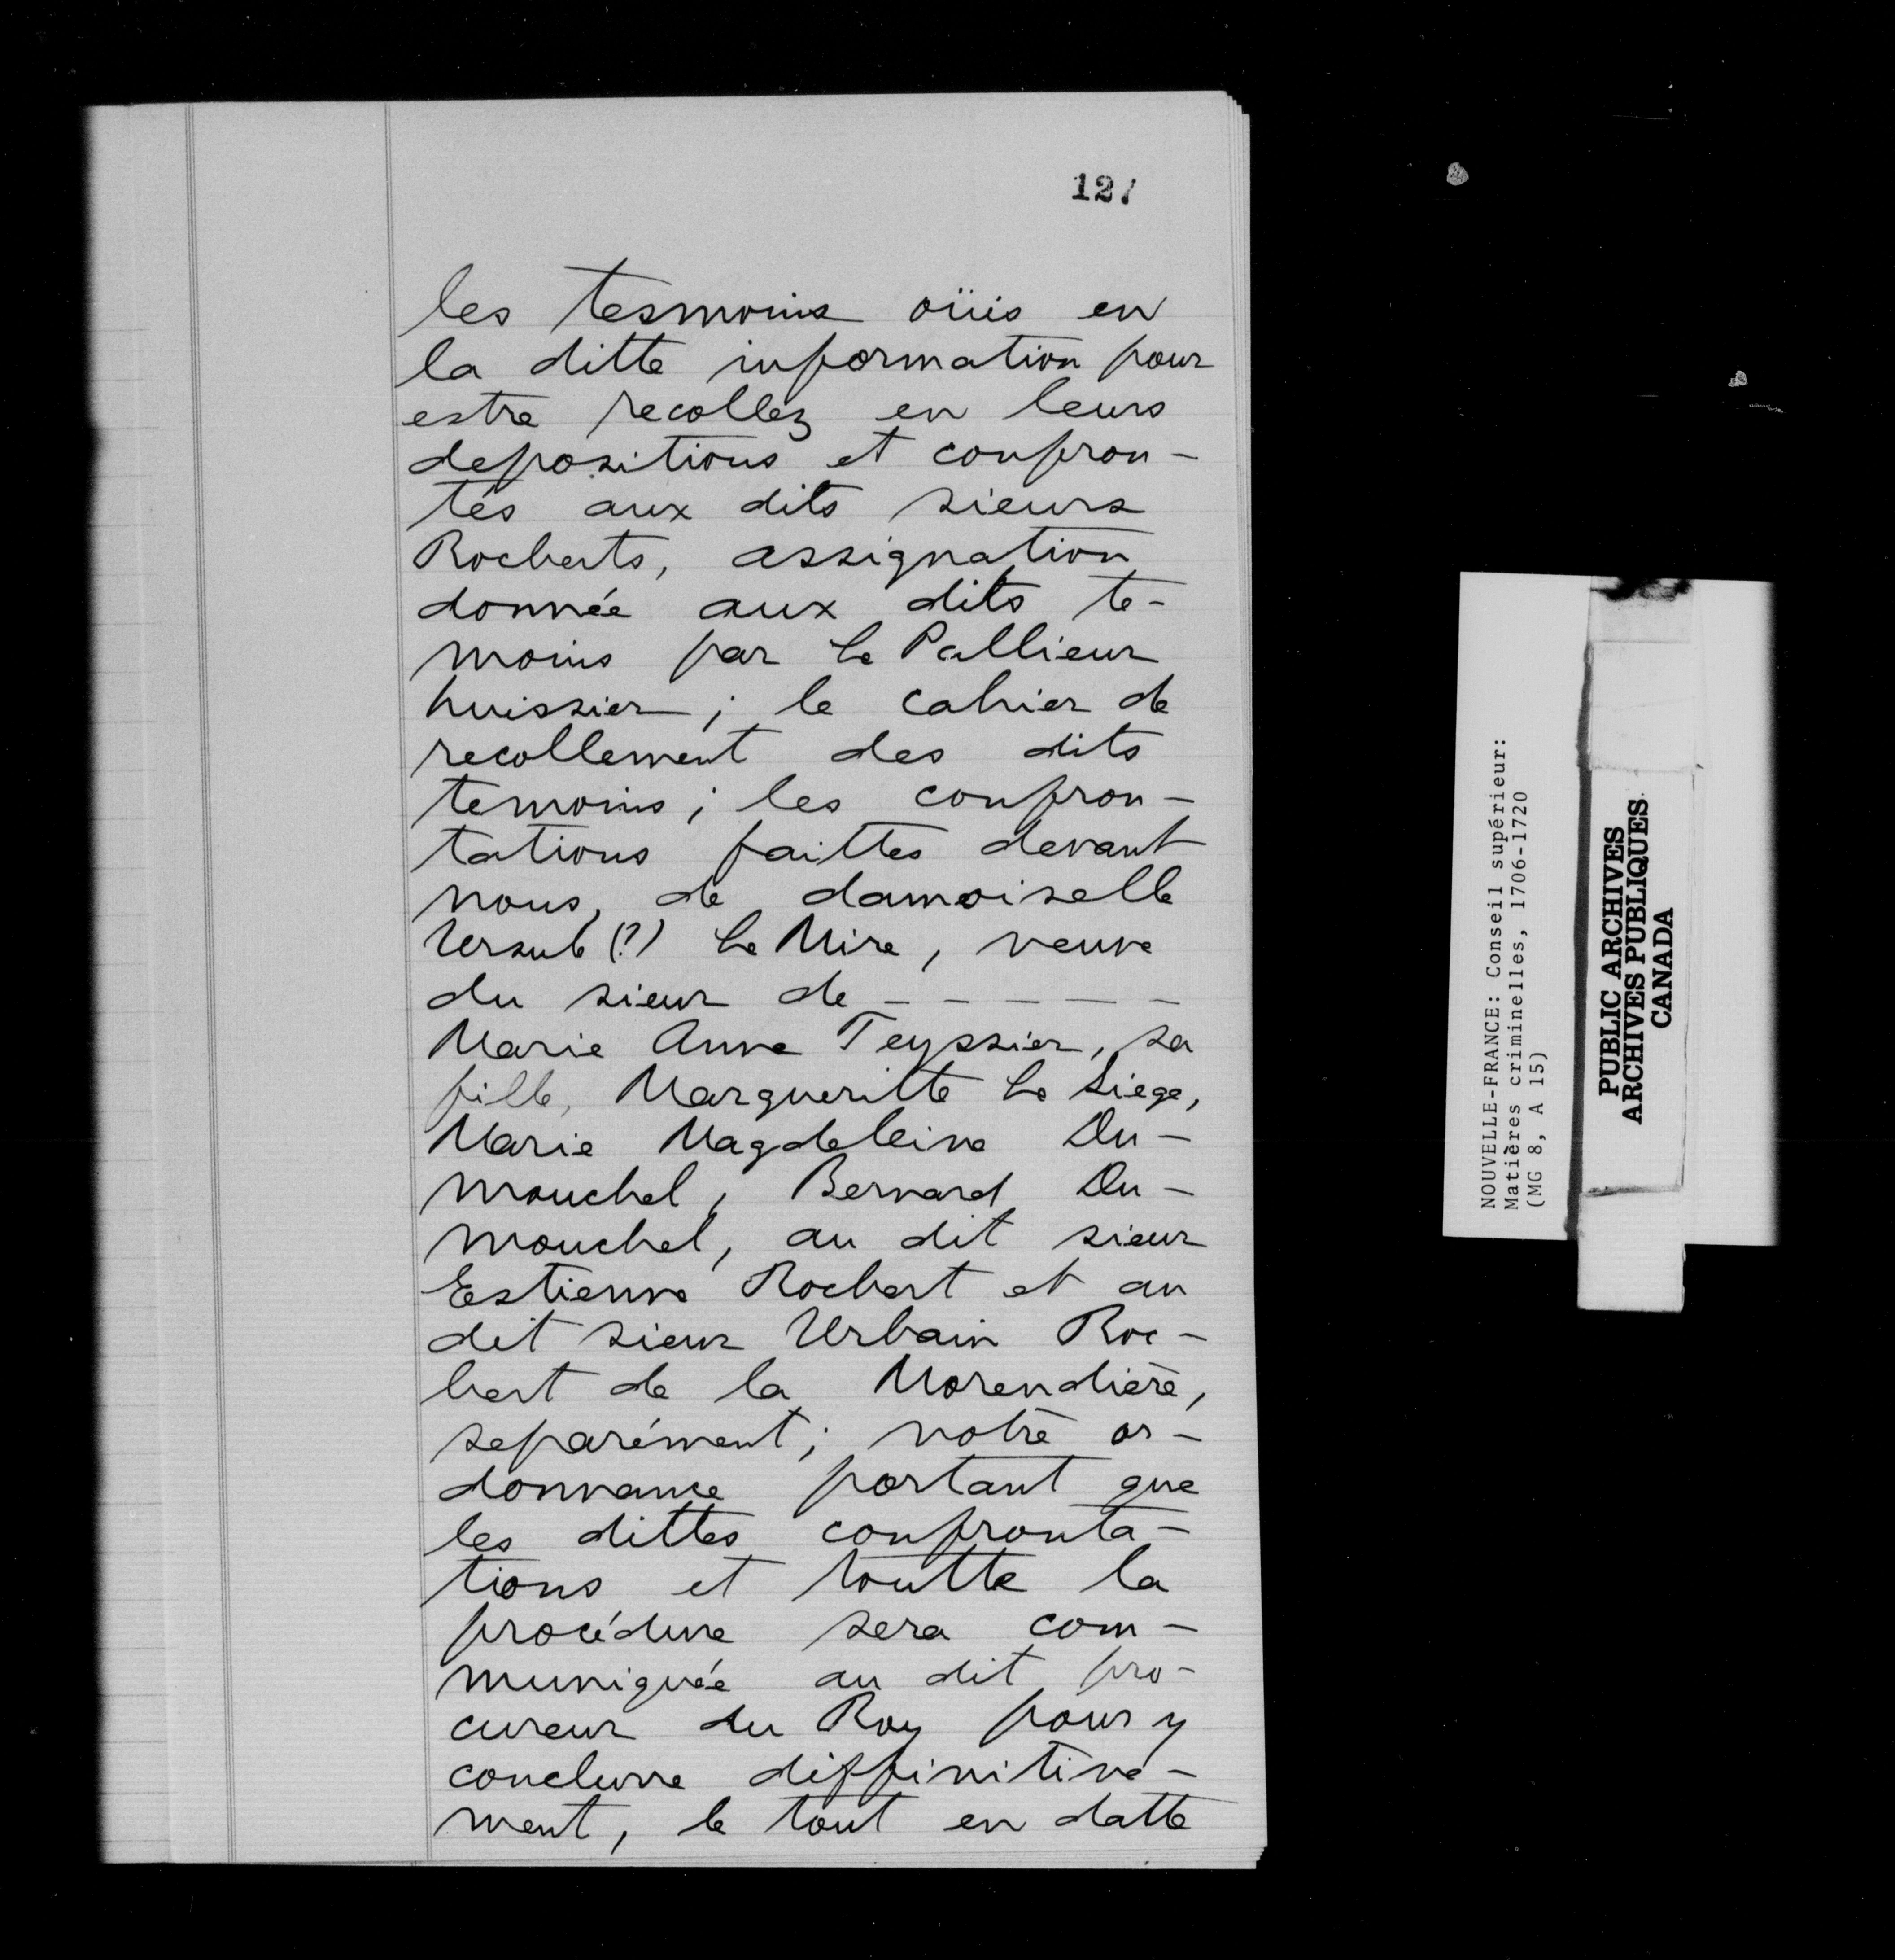 127
les tesmoins oüis en
la ditte information pour
estre recollez en leurs
depositions et confron-
tés aux dits sieurs
Rocberts, assignation
donnée aux dits te-
moins par Le Pallieur
huissier; le cahier de
recollement des dits
temoins; les confron-
tations faittes devant
nous, de damoiselle
Ursule (?) Le Mire, veuve
du sieur de - - - - -
Marie Anne Teyssier, sa
fille, Margueritte Le Siege,
Marie Magdeleine Du-
mouchel, Bernard Du-
mouchel, au dit sieur
Estienne Rocbert et au
dit sieur Urbain Roc-
bert de la Morendière,
separément; notre or-
donnance portant que
les dittes confronta-
tions et toutte la
procédure sera com-
muniquée au dit pro-
cureur du Roy pour y
conclure diffinitive-
ment, le tout en datte
NOUVELLE-FRANCE: Conseil supérieur:
Matières criminelles, 1706-1720
(MG 8, A 15)
PUBLIC ARCHIVES
ARCHIVES PUBLIQUES
CANADA